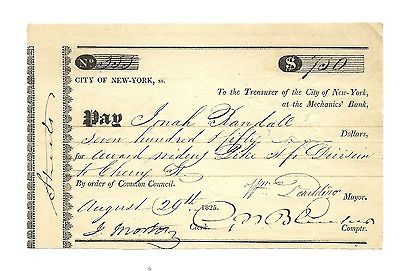 Streets
No. 333 $ 750
CITY OF NEW-YORK, ss.
To the Treasurer of the City of New-York,
at the Mechanics' Bank,
Pay Jonah Randall
Seven hundred & fifty Dollars,
for award wideng Pike St. fr. Division
to Cherry St.
By order of Common Council.
Mayor.
August 29th 1825.
J Morton Clerk. Comptr.